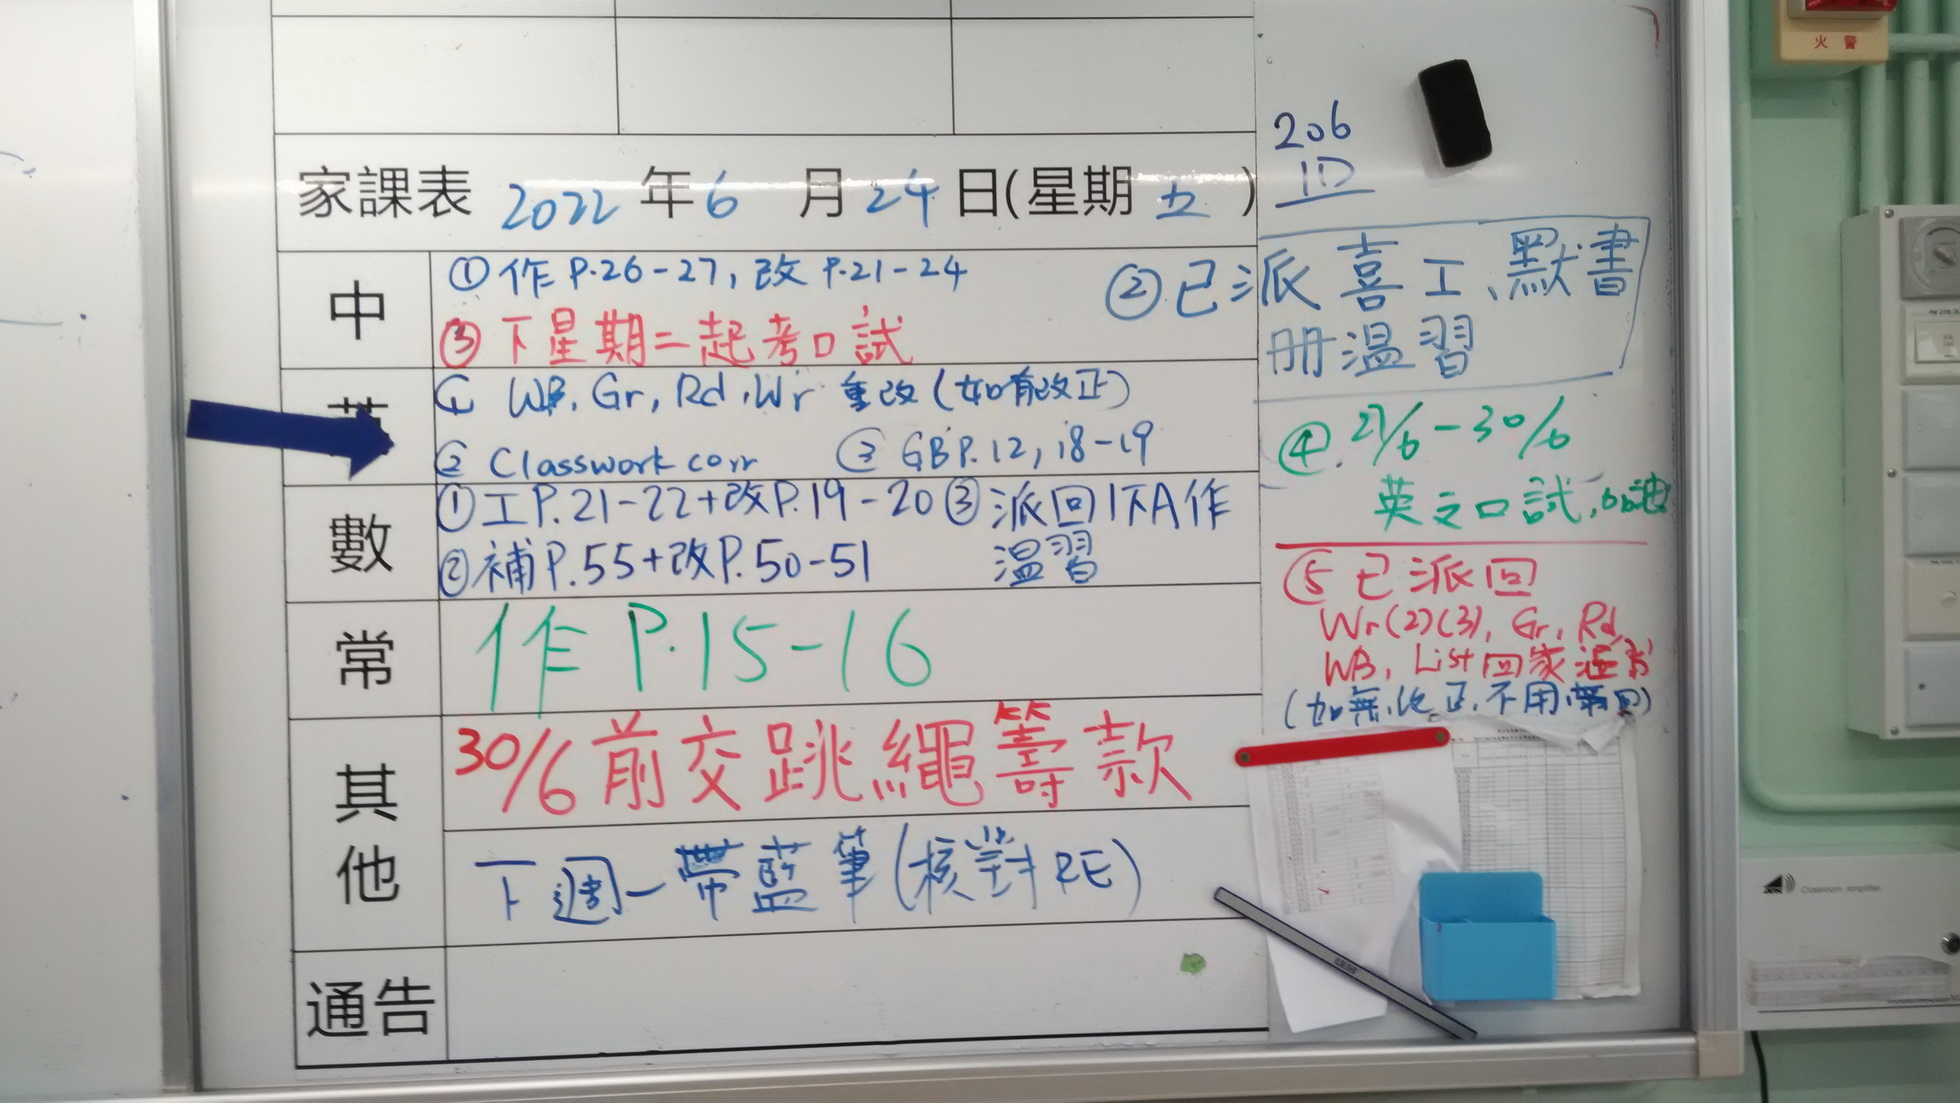 火警
206
1D
家課表 2022 年 6 月 24 日(星期 五 )
中
① 作 P.26-27, 改 P.21-24
② 已派喜工、默書
冊溫習
③ 下星期二起考口試
① WB, Gr, Rd, Wr 重改 (如有改正)
② Classwork corr ③ GB P.12, 18-19
④ 27/6-30/6
英文口試,
數
① 工 P.21-22+改P.19-20 ③ 派回1下A作
溫習
② 補 P.55+改P.50-51
⑤ 已派回
Wr(2)(3), Gr, Rd,
WB, List 回家溫習
(如無改正,不用帶回)
常
作 P.15-16
其他
30/6前交跳繩籌款
下週一帶藍筆(核對RE)
通告
Classroom Amplifier